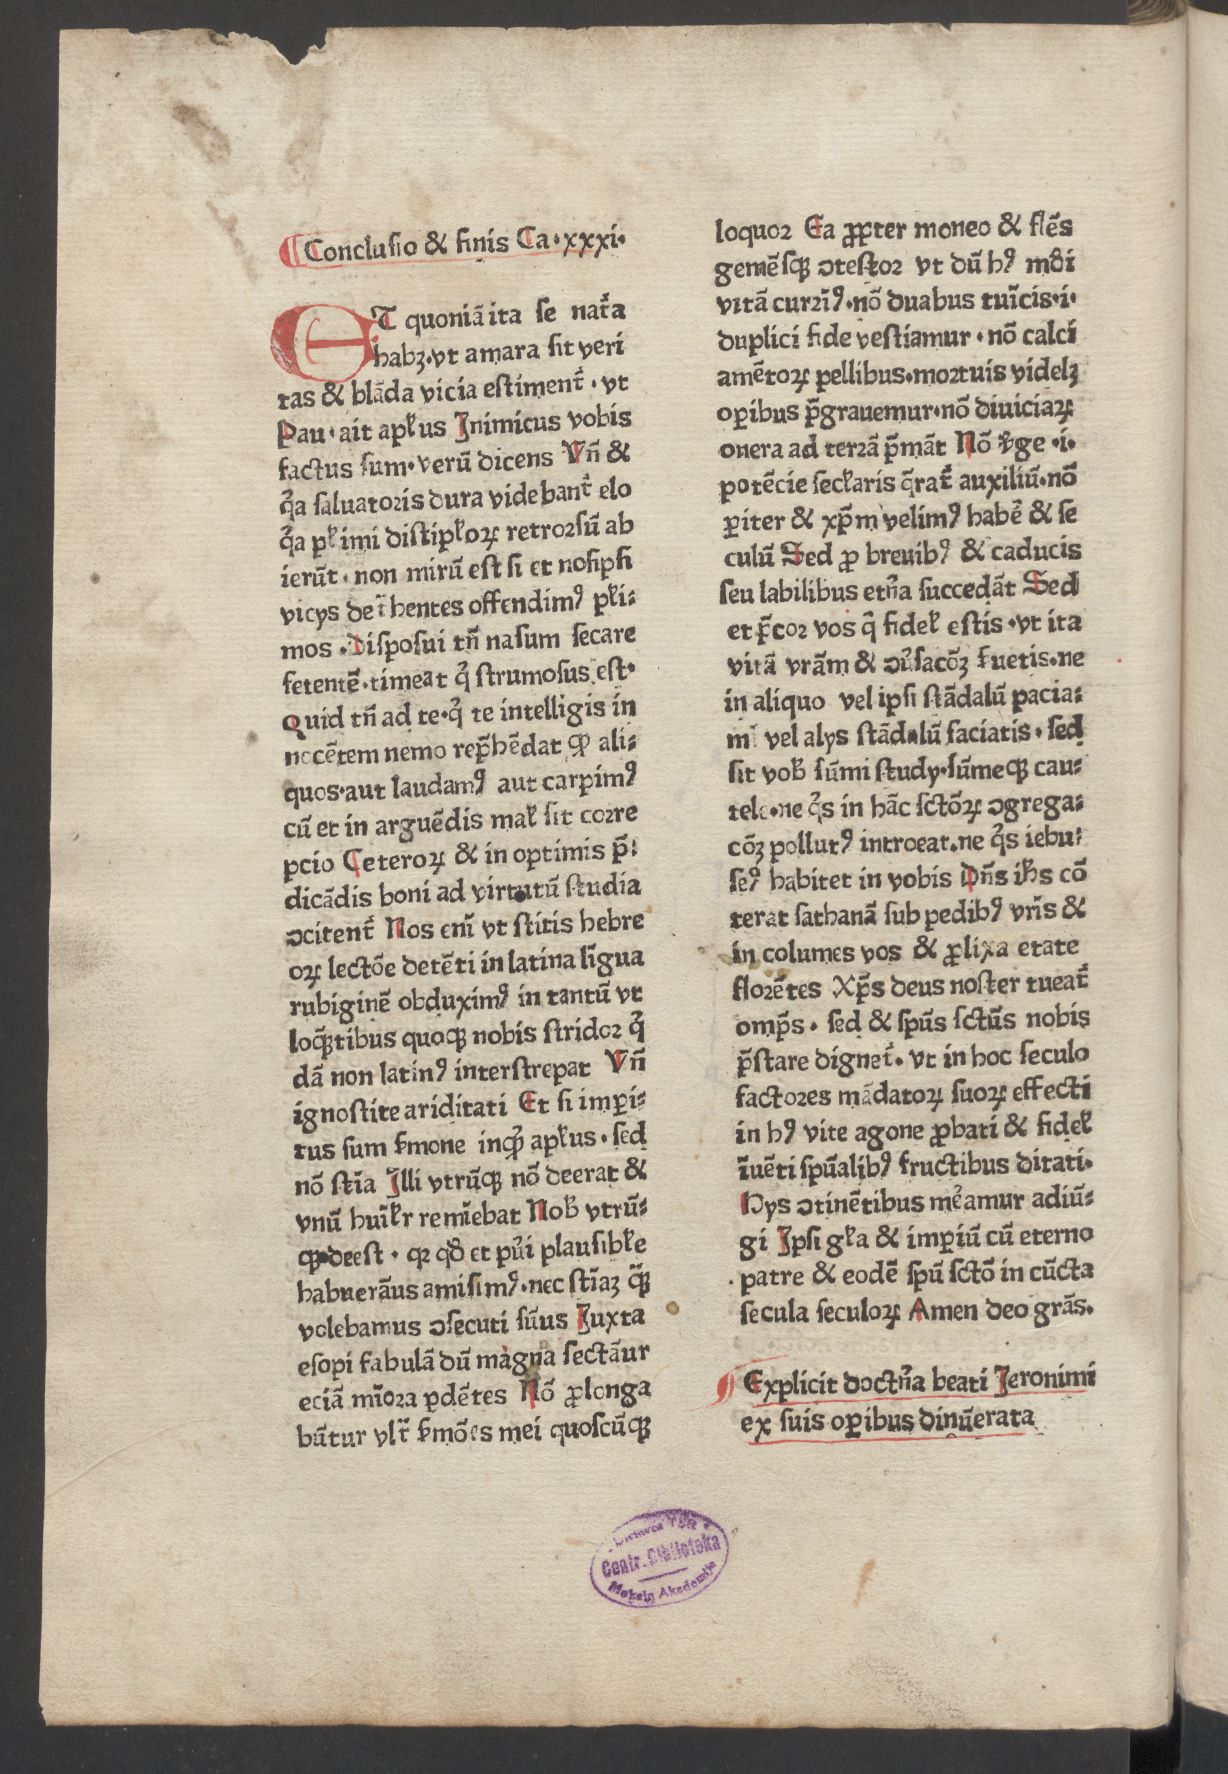 ¶ Conclusio & finis Ca·xxxi·
ET quoniā ita se nat̃a
habꝫ·vt amara sit veri
tas & blāda vicia estiment̃·vt
Pau·ait apłus Inimicus vobis
factus sum·verū dicens Vñ &
q̃a saluatoris dura videbant̃ elo
q̃a płimi discipłoꝝ retrorsū ab
ierūt·non mirū est si et nosipsi
vicys det̃hentes offendimꝰ płi⸗
mos·Disposui tñ nasum secare
fetentē·timeat q̇ strumosus est·
Quid tñ ad te·q̇ te intelligis in
nocētem nemo rep̄hēdat ꝙ ali⸗
quos·aut laudamꝰ aut carpimꝰ
cū et in arguēdis mał sit corre
pcio Ceteroꝝ & in optimis p̄⸗
dicādis boni ad virtutū studia
ↄcitent̃ Nos eni̅ vt scitis hebre
oꝝ lectōe detēti in latina līgua
rubiginē obduximꝰ in tantū vt
loq̄tibus quoqꝫ nobis stridor q̇
dā non latinꝰ interstrepat Vñ
ignoscite ariditati Et si imperi⸗
tus sum ẜmone inqͥt apłus·sed
nō scīa Illi vtrūqꝫ nō deerat &
vnū huīłr remīebat Nob̃ vtrū⸗
qꝫ deest·qꝛ qd̃ et pu̇i plausibłe
habuerāus amisimꝰ·nec scīaꝫ q̄ꝫ
volebamus ↄsecuti sūus Iuxta
esopi fabulā dū magna sectāur
eciā mīora ꝑdētes Nō ꝓlonga
būtur vlt̃ ẜmōes mei quoscūqꝫ
loquor Ea ꝓpter moneo & flēs
gemēsqꝫ ↄtestor vt dū hꝰ mūdi
vitā currīꝰ·nō duabus tuīcis·i·
duplici fide vestiamur·nō calci
amētoꝝ pellibus·mortuis videlꝫ
oꝑibus p̄grauemur·nō diuiciaꝝ
onera ad terrā p̄māt Nō v̇ge·i·
potēcie secłaris q̄rat̃ auxiliū·nō
ꝑiter & xp̄m velimꝰ habē & se
culū Sed ꝓ breuibꝰ & caducis
seu labilibus et̃na succedāt Sed
et p̄cor vos q̇ fideł estis·vt ita
vitā vrām & ↄu̇sacōꝫ ẜuetis·ne
in aliquo vel ipsi scādalū pacia⸗
mĩ vel alys scādalū faciatis·sed
sit vob̃ sūmi study·sūmeqꝫ cau⸗
tele·ne q̇s in hāc sctōꝝ ↄgrega⸗
cōꝫ pollutꝰ introeat·ne q̇s iebu⸗
seꝰ habitet in vobis Dñs ihs cō
terat sathanā sub pedibꝰ vr̄is &
in columes vos & ꝓlixa etate
florētes Xp̄s deus noster tueat̃
omp̄s·sed & spūs sctūs nobis
p̄stare dignet̃·vt in hoc seculo
factores mādatoꝝ suoꝝ effecti
in hꝰ vite agone ꝓbati & fideł
īuēti spūalibꝰ fructibus ditati·
Hys ↄtinētibus me̓amur adiū⸗
gi Ipsi gła & imperiū cū eterno
patre & eodē spū sctō in cūcta
secula seculoꝝ Amen deo grās·
¶ Explicit doct̃na beati Jeronimi
ex suis oꝑibus dinūerata
Centr. Biblioteka
Mokslų Akademija